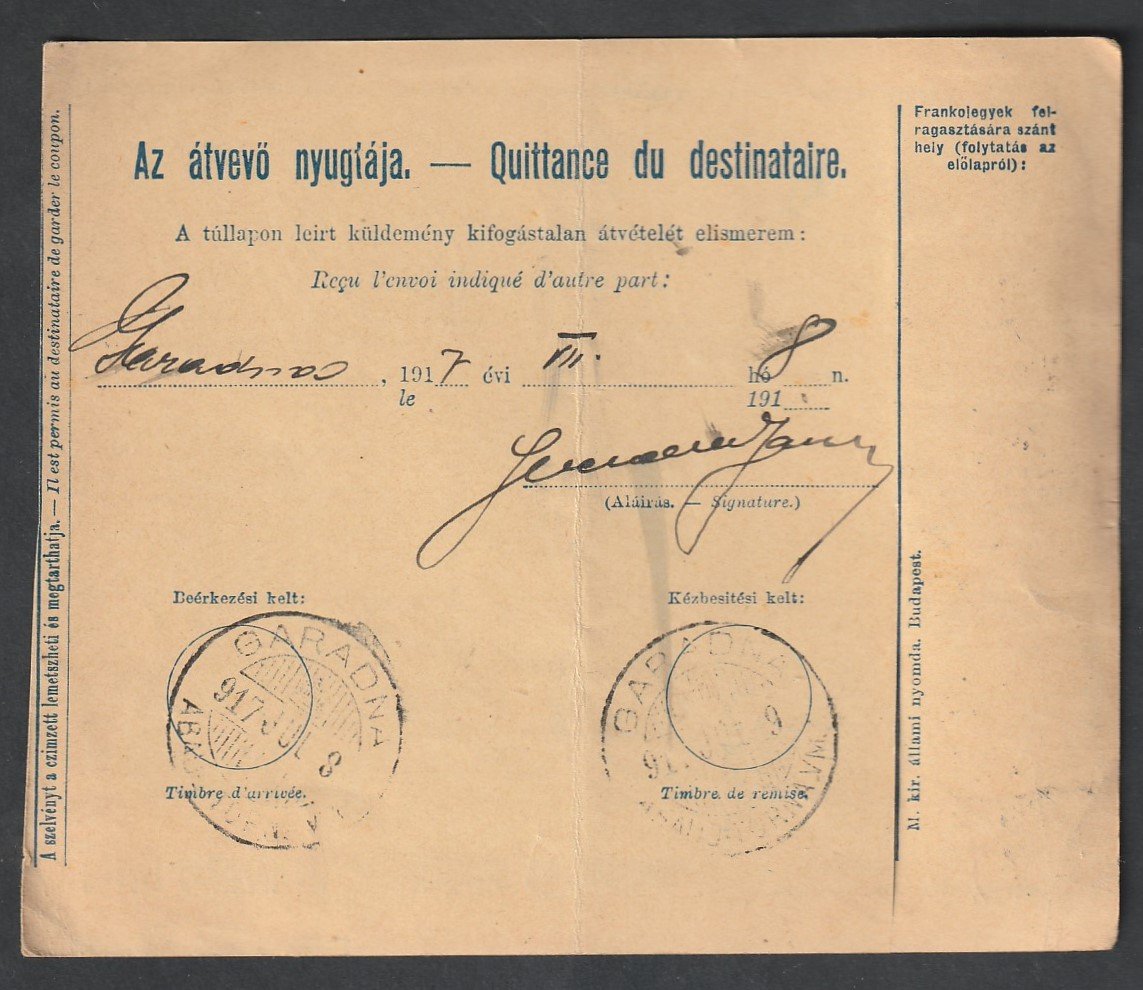 A szelvényt a czimzett lemetszheti és megtarthatja. — Il est permis au destinataire de garder le coupon.
Az átvevő nyugtája. — Quittance du destinataire.
A túllapon leirt küldemény kifogástalan átvételét elismerem:
Reçu l'envoi indiqué d'autre part:
Garadna, 1917 évi VII. hó 8 n.
le 191
(Aláirás. — Signature.)
Beérkezési kelt:
Kézbesitési kelt:
GARADNA
917 JUL 8
GARADNA
917 JUL 9
Timbre d'arrivée.
Timbre de remise.
Frankojegyek fel-
ragasztására szánt
hely (folytatás az
előlapról):
M. kir. állami nyomda. Budapest.